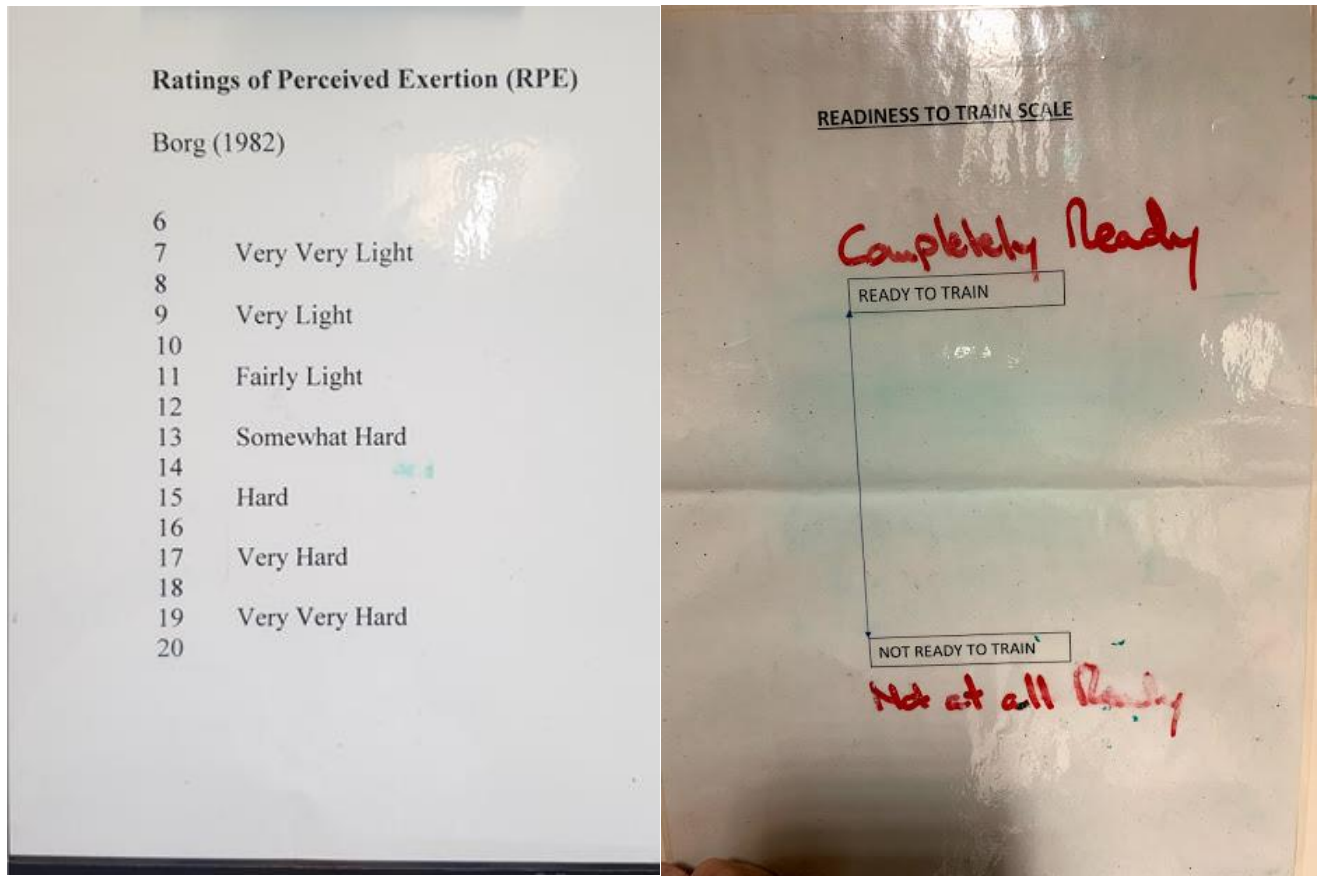 Ratings of Perceived Exertion (RPE)
Borg (1982)
6
7 Very Very Light
8
9 Very Light
10
11 Fairly Light
12
13 Somewhat Hard
14
15 Hard
16
17 Very Hard
18
19 Very Very Hard
20
READINESS TO TRAIN SCALE
Completely Ready
READY TO TRAIN
NOT READY TO TRAIN
Not at all Ready